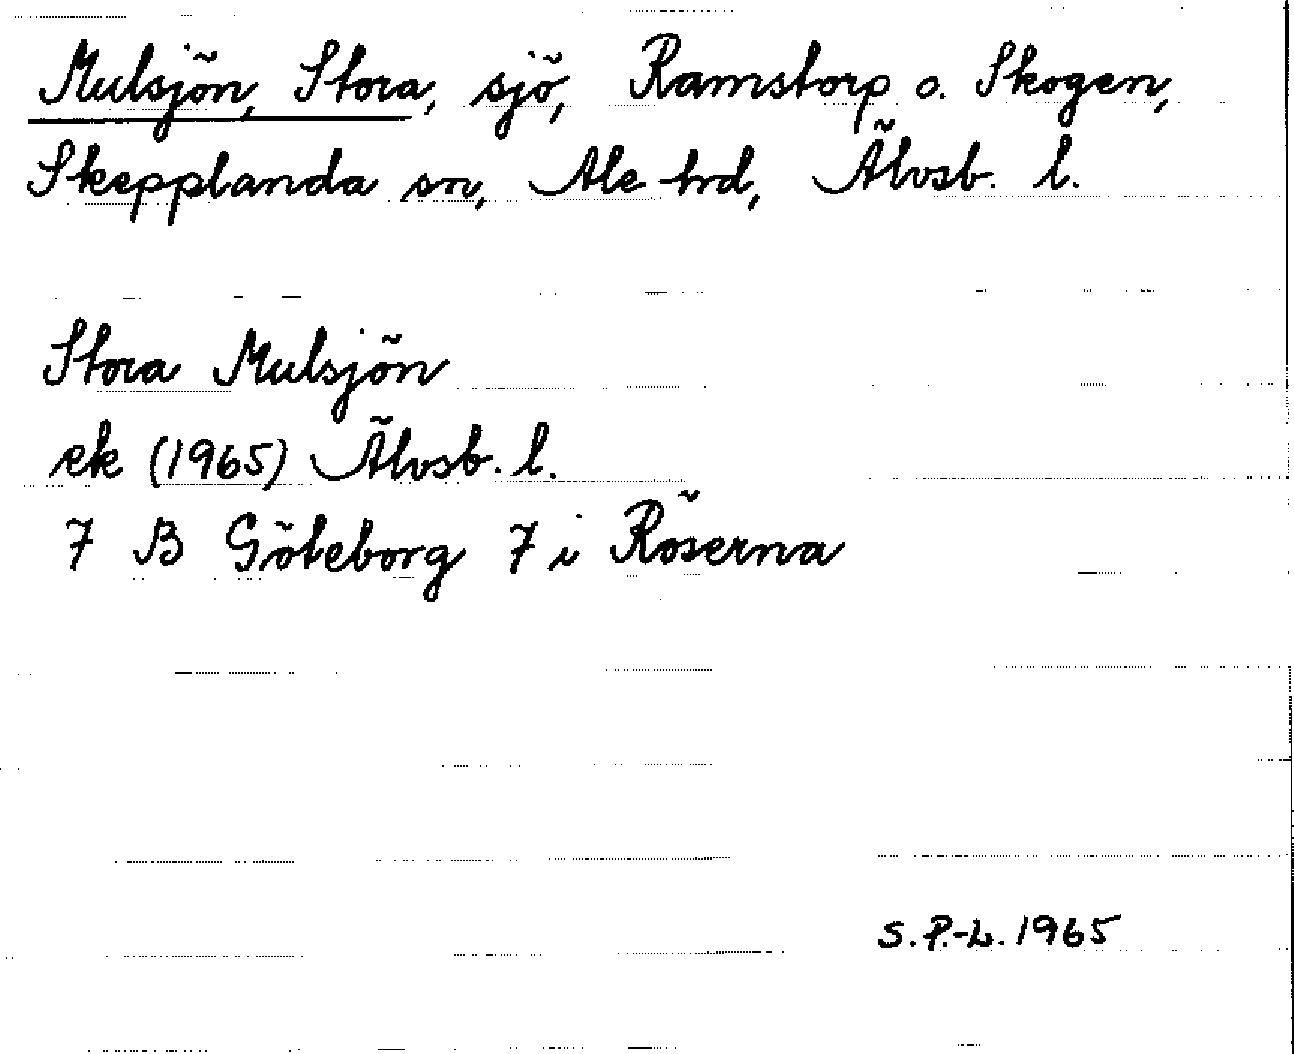 Mulsjön, Stora, sjö, Ramstorp o. Skogen,
Skepplanda sn, Ale hd, Älvsb. l.
Stora Mulsjön
ek (1965) Älvsb. l.
7 B Göteborg 7 i Röserna
S. P.-L. 1965